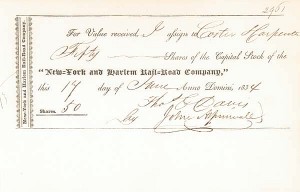 2961
For Value received, I assign to Carter Harpende
Fifty Shares of the Capital Stock of the
"New-York and Harlem Rail-Road Company,"
this 17 day of June Anno Domini, 1834
Shares. 50
Thos E Davis
By John Aspinwall
New-York and Harlem Rail-Road Company.